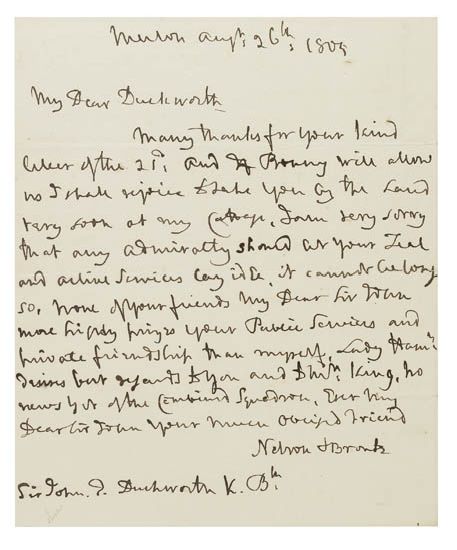 Merton Augt: 26th: 1805
My Dear Duckworth
Many thanks for your kind
letter of the 21st: and if Bonny will allow
us I shall rejoice to take you by the hand
very soon at my Cottage, I am very sorry
that any admiralty should let your Zeal
and active Services lay idle, it cannot be long
so, none of your friends My Dear Sir John
more highly prizes your Public Services and
private friendship than myself, Lady Hamn:
desires best regards to you and King, no
news yet of the Combined Squadron, Ever My
Dear Sir John Your much obliged friend
Nelson & Bronte
Sir John. T. Duckworth K. Bth